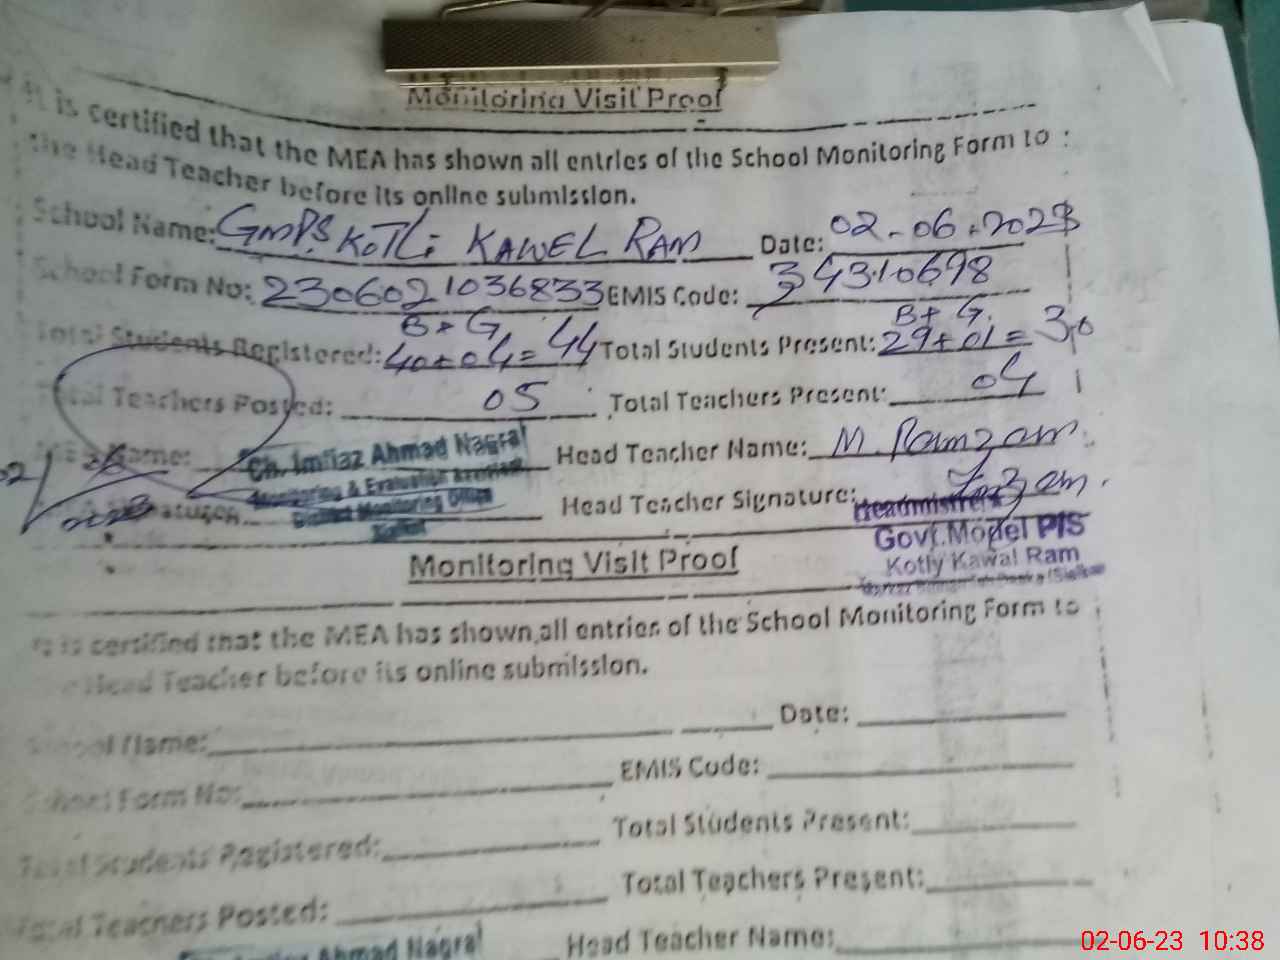 Monitoring Visit Proof
It is certified that the MEA has shown all entries of the School Monitoring Form to
the Head Teacher before its online submission.
School Name: GMPS KOTLi KAWEL RAM Date: 02-06-2023
School Form No: 2306021036833 EMIS Code: 34310698
B+G B+G
Total Students Registered: 40+04=44 Total Students Present: 29+01=30
Total Teachers Posted: 05 Total Teachers Present: 04
Name: Ch. Imtiaz Ahmad Nagra Head Teacher Name: M. Ramzam
Monitoring & Evaluation Assistant
District Monitoring Office
Sialkot
Head Teacher Signature:
Headmistress
Govt. Model P/S
Kotly Kawal Ram
Monitoring Visit Proof
It is certified that the MEA has shown all entries of the School Monitoring Form to
the Head Teacher before its online submission.
School Name: Date:
School Form No: EMIS Code:
Total Students Registered: Total Students Present:
Total Teachers Posted: Total Teachers Present:
Ahmad Nagra Head Teacher Name:
02-06-23 10:38